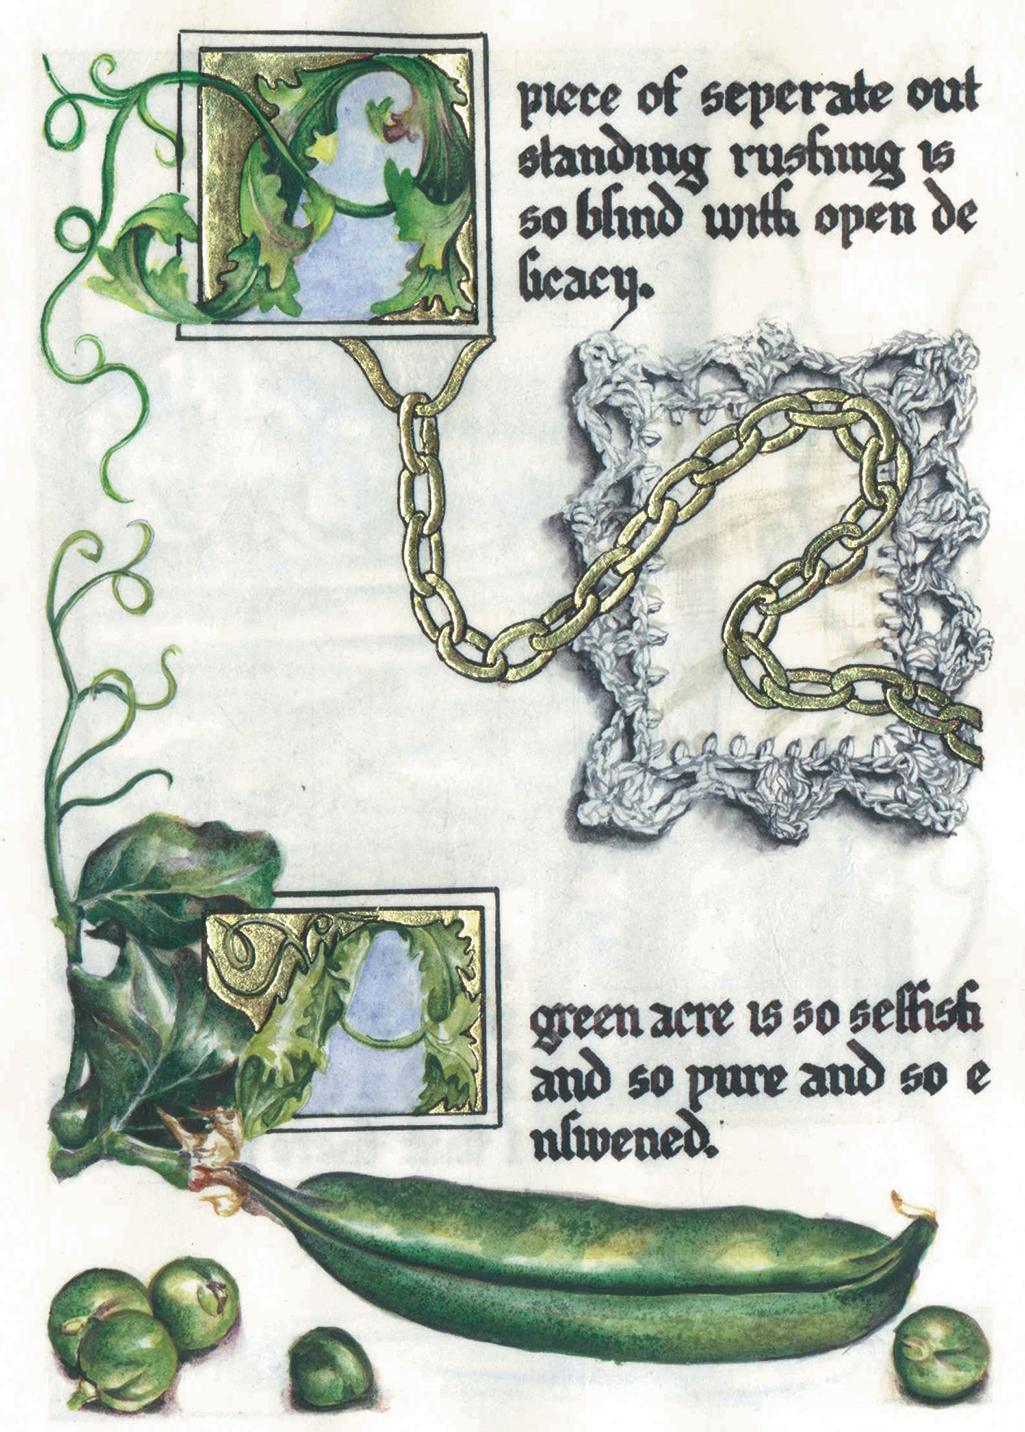 A piece of seperate out
standing rushing is
so blind with open de
licacy.
A green acre is so selfish
and so pure and so e
nlivened.